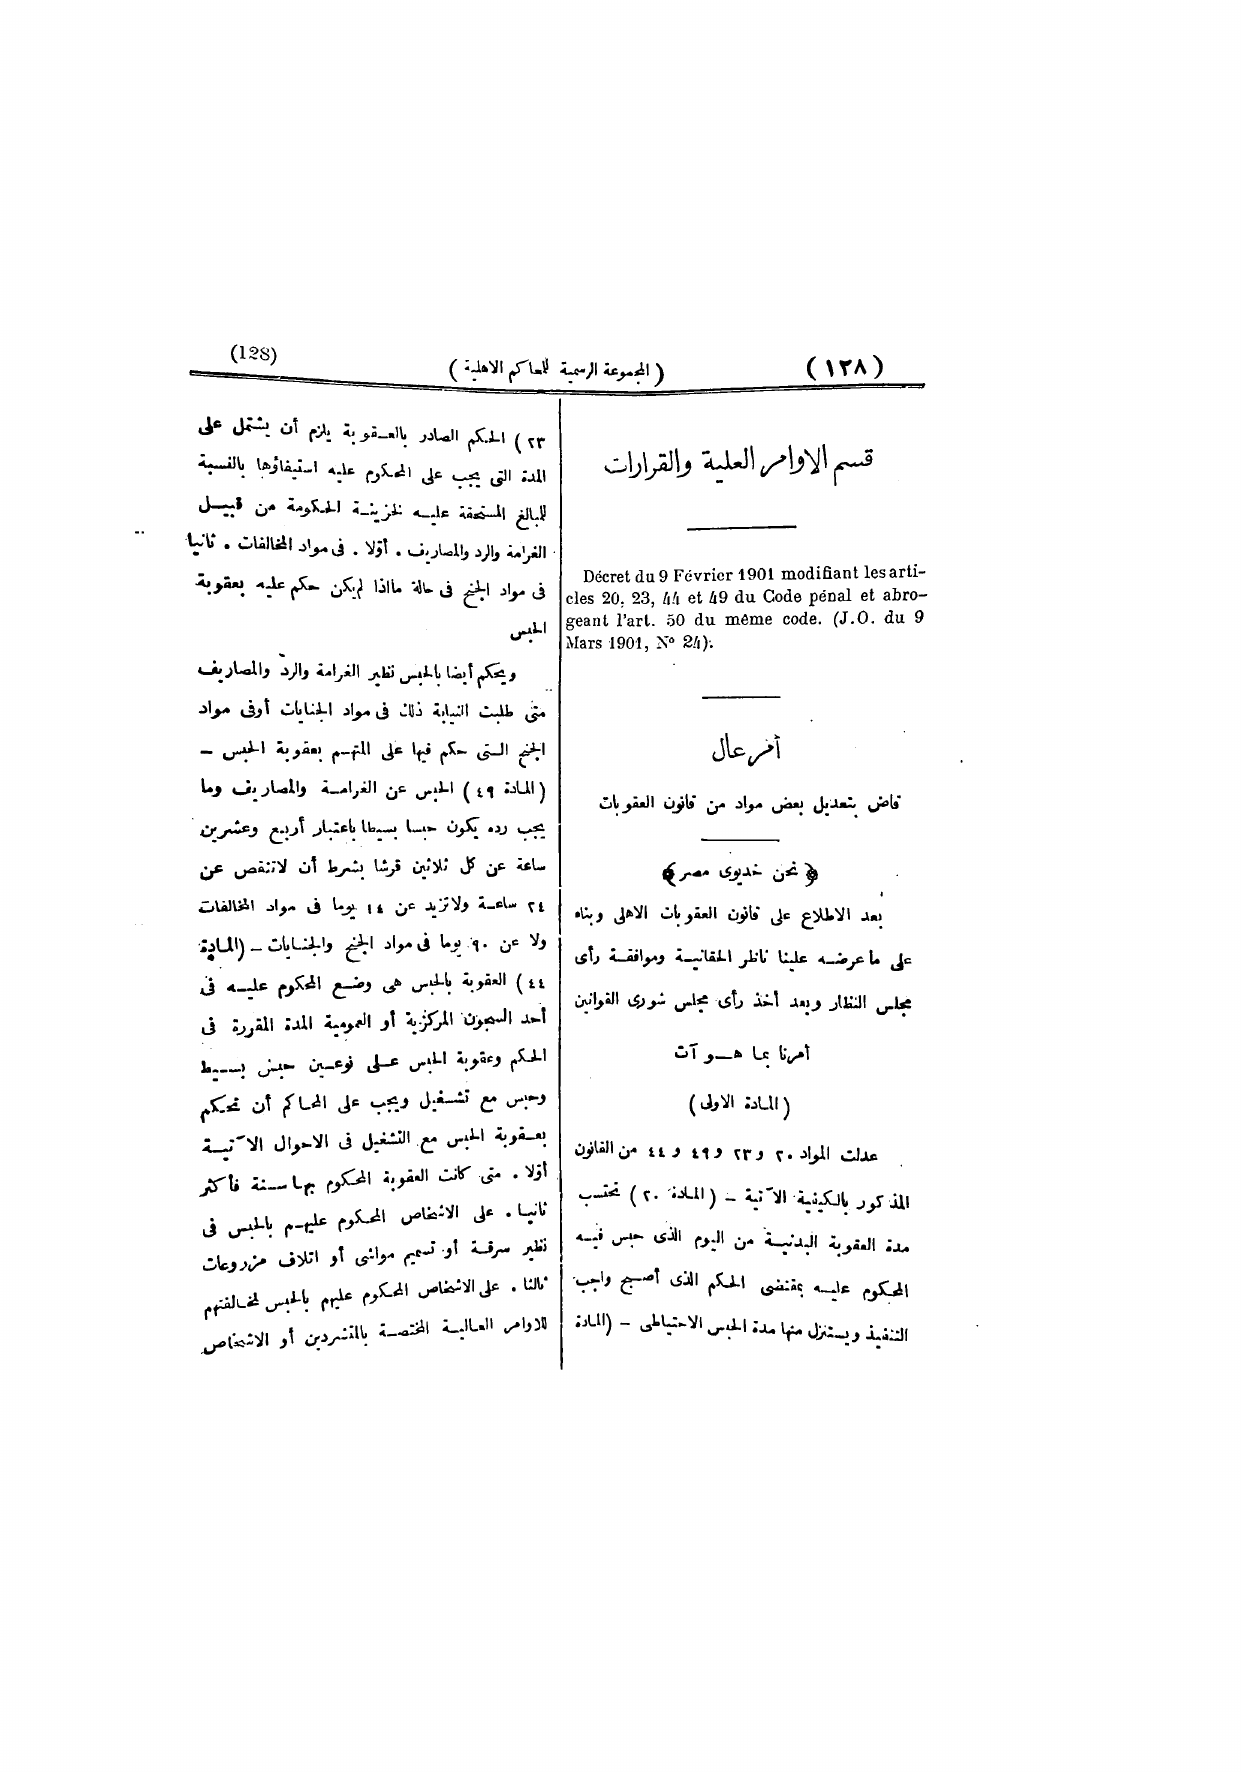 (١٢٨)
(المجموعة الرسمية للمحاكم الاهلية)
(128)
قسم الاوامر العلية والقرارات
Décret du 9 Février 1901 modifiant les arti-
cles 20, 23, 44 et 49 du Code pénal et abro-
geant l'art. 50 du même code. (J.O. du 9
Mars 1901, Nº 24).
أمر عال
قاض بتعديل بعض مواد من قانون العقوبات
﴿نحن خديوى مصر﴾
بعد الاطلاع على قانون العقوبات الاهلى وبناء
على ماعرضه علينا ناظر الحقانية وموافقة رأى
مجلس النظار وبعد أخذ رأى مجلس شورى القوانين
أمرنا بما هو آت
(المادة الاولى)
عدلت المواد ٢٠ و٢٣ و٤٩ و٤٤ من القانون
المذكور بالكيفية الآتية – (المادة ٢٠) تحتسب
مدة العقوبة البدنية من اليوم الذى حبس فيه
المحكوم عليه بمقتضى الحكم الذى أصبح واجب
التنفيذ ويستنزل منها مدة الحبس الاحتياطى – (المادة
٢٣) الحكم الصادر بالعقوبة يلزم أن يشتمل على
المدة التى يجب على المحكوم عليه استيفاؤها بالنسبة
للمبالغ المستحقة عليه لخزينة الحكومة من قبيل
الغرامة والرد والمصاريف . أوّلا . فى مواد المخالفات . ثانيا
فى مواد الجنح فى حالة مااذا لم يكن حكم عليه بعقوبة
الحبس
ويحكم أيضا بالحبس نظير الغرامة والردّ والمصاريف
متى طلبت النيابة ذلك فى مواد الجنايات أوفى مواد
الجنح التى حكم فيها على المتهم بعقوبة الحبس –
(المادة ٤٩) الحبس عن الغرامة والمصاريف وما
يجب رده يكون حبسا بسيطا باعتبار أربع وعشرين
ساعة عن كل ثلاثين قرشا بشرط أن لاتنقص عن
٢٤ ساعة ولاتزيد عن ١٤ يوما فى مواد المخالفات
ولا عن ٩٠ يوما فى مواد الجنح والجنايات – (المادة
٤٤) العقوبة بالحبس هى وضع المحكوم عليه فى
أحد السجون المركزية أو العمومية المدة المقررة فى
الحكم وعقوبة الحبس على نوعين حبس بسيط
وحبس مع تشغيل ويجب على المحاكم أن تحكم
بعقوبة الحبس مع التشغيل فى الاحوال الآتية
أوّلا . متى كانت العقوبة المحكوم بها سنة فأكثر
ثانيا . على الاشخاص المحكوم عليهم بالحبس فى
نظير سرقة أو تسميم مواشى أو اتلاف مزروعات
ثالثا . على الاشخاص المحكوم عليهم بالحبس لمخالفتهم
للاوامر العالية المختصة بالمتشردين أو الاشخاص